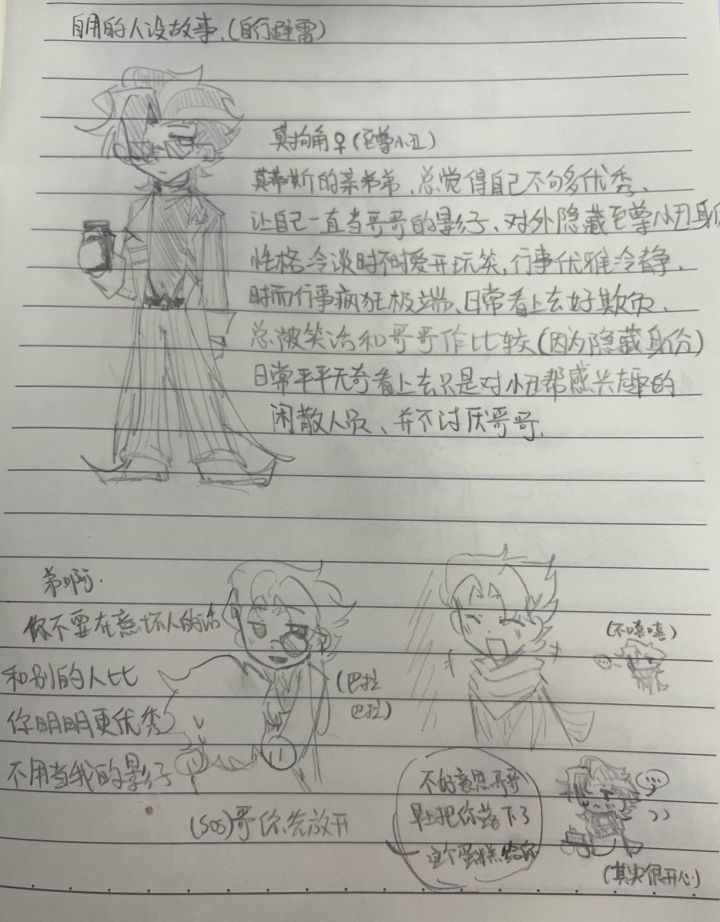 自用的人设故事、(自行避雷)
莫拘角♀(至尊小丑)
莫蒂斯的亲弟弟、总觉得自己不句多优秀、
让自己一直当哥哥的影子、对外隐藏至尊小丑身份
性格冷谈时不时爱开玩笑,行事优雅冷静、
时而行事疯狂极端、日常看上去好欺负、
总被笑话和哥哥作比较(因为隐藏身份)
日常平平无奇看上去只是对小丑帮感兴趣的
闲散人员、并不讨厌哥哥.
弟啊.
你不要在意坏人的话
和别的人比
你明明更优秀
不用当我的影子
(巴拉
巴拉)
(SOS)哥你先放开
(不嘻嘻)
不好意思哥哥
早上把你落下了
这个蛋糕给你
(其实很开心)